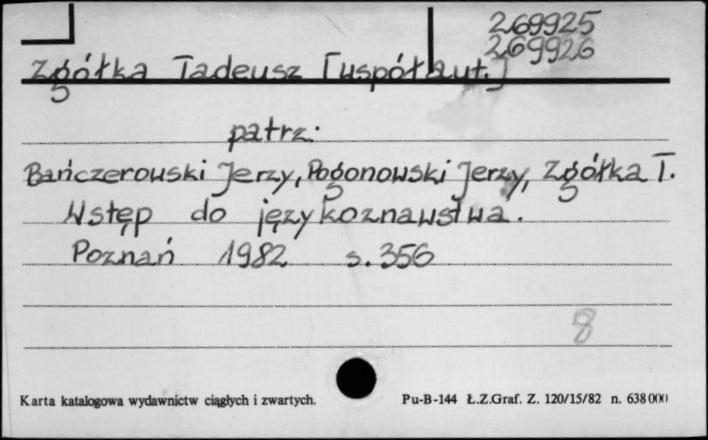 269925
269926
Zgółka Tadeusz [współaut.]
patrz:
Bańczerowski Jerzy, Pogonowski Jerzy, Zgółka T.
Wstęp do językoznawstwa.
Poznań 1982 s. 356
8
Karta katalogowa wydawnictw ciągłych i zwartych. Pu-B-144 Ł.Z.Graf. Z. 120/15/82 n. 638000